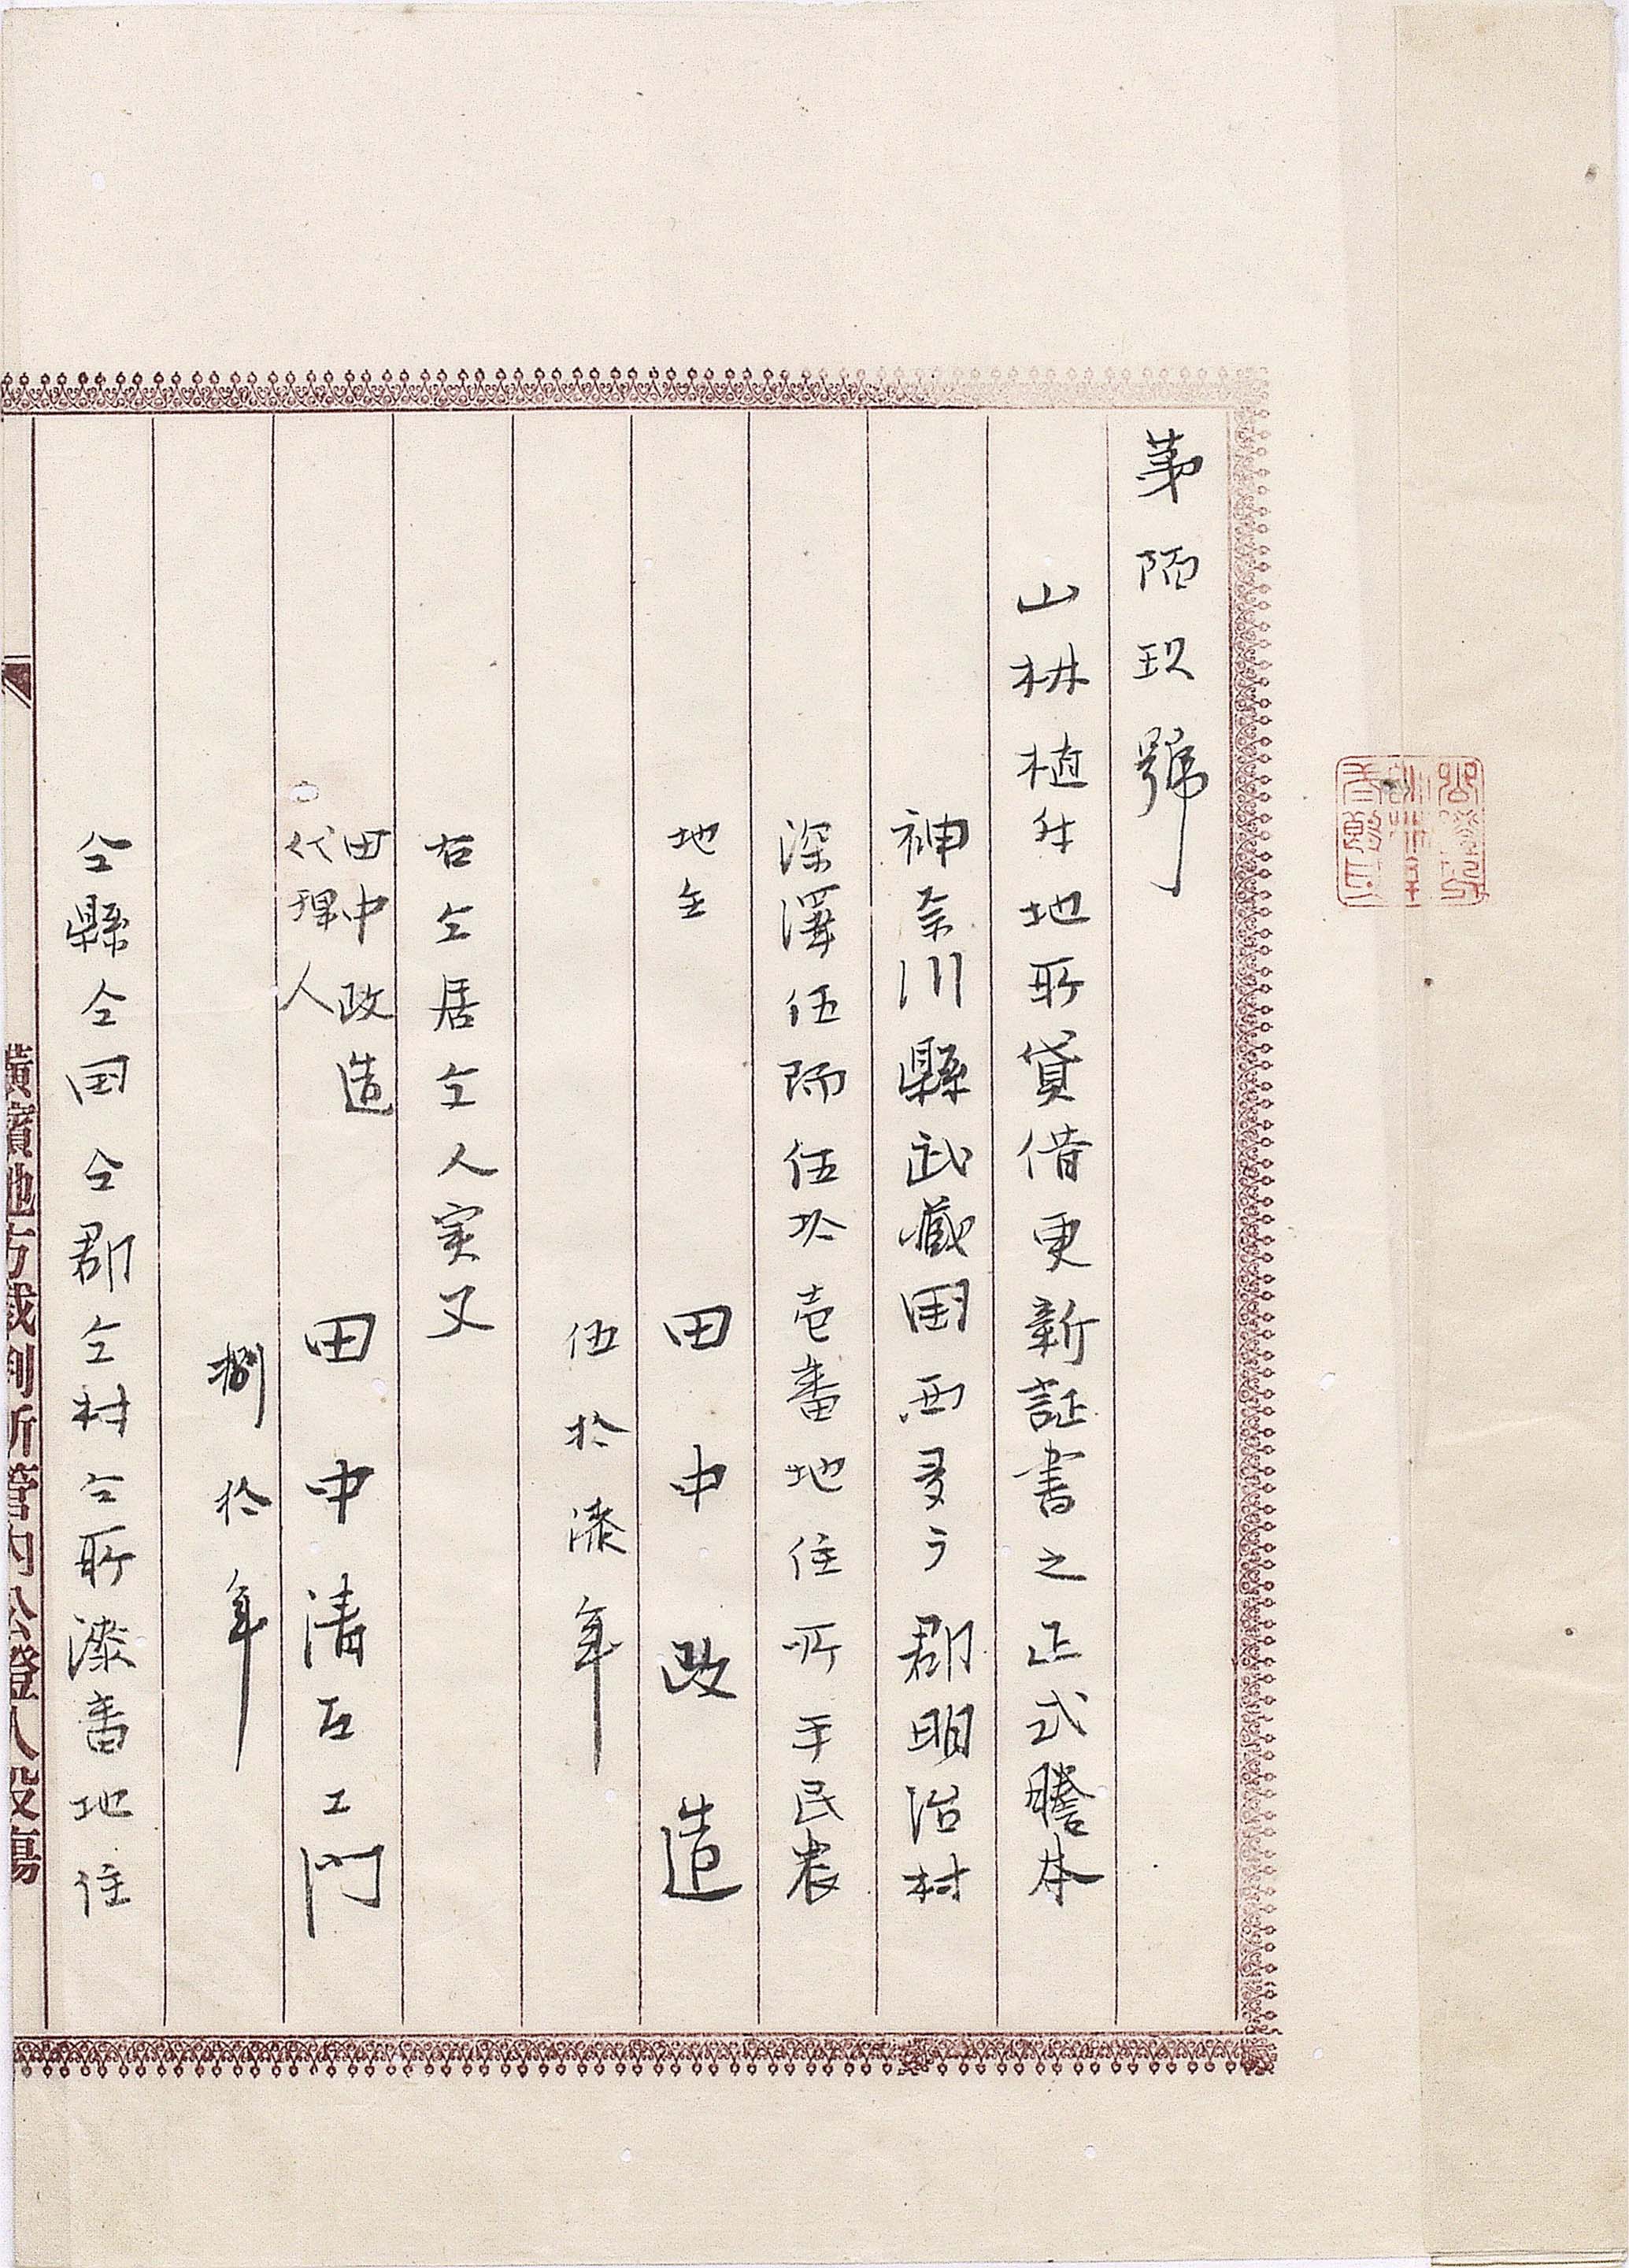 第陌玖號
山林植付地所貸借更新証書之正式謄本
神奈川縣武藏国西多广郡明治村
深澤伍陌伍拾壱番地住所平民農
地主
田中政造
伍拾漆年
右仝居仝人実父
田中政造
代理人
田中清右エ門
捌拾年
仝縣仝国仝郡仝村仝所漆番地住
橫濱地方裁判所管内公證人役場